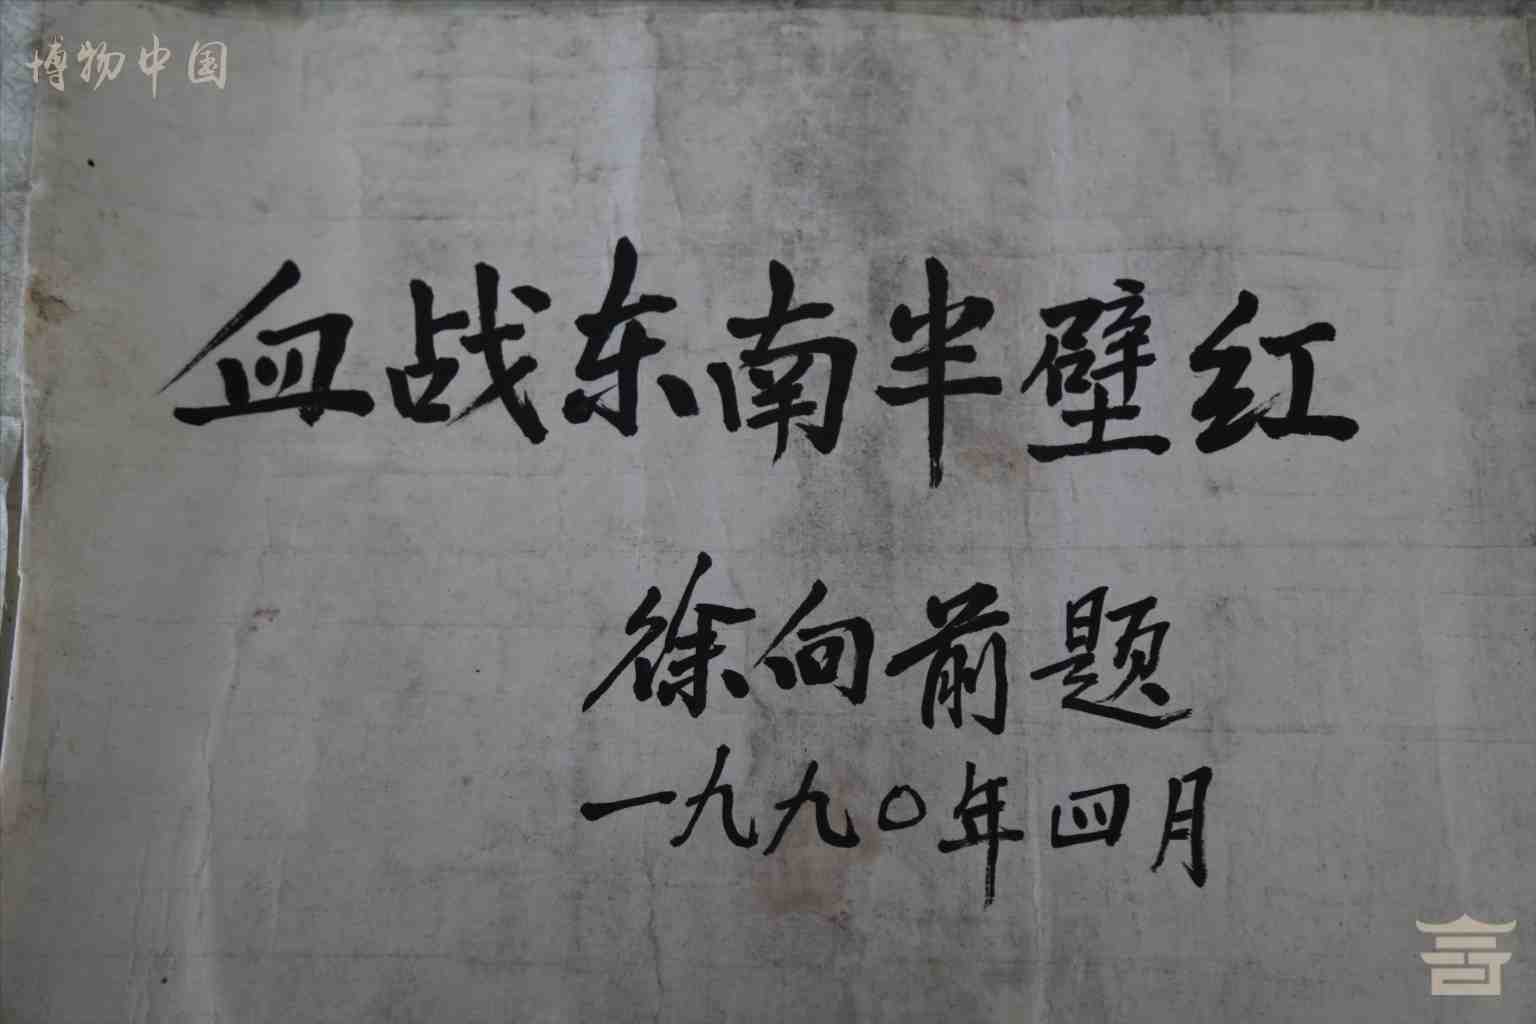 博物中国
血战东南半壁红
徐向前题
一九九〇年四月